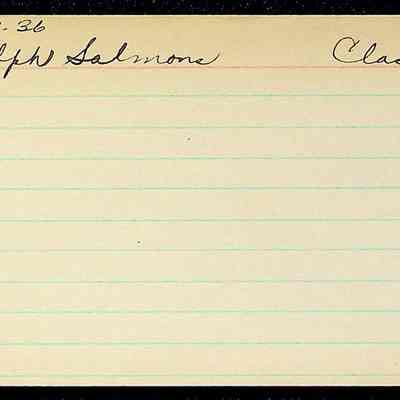 . 36
lph Salmons Clas